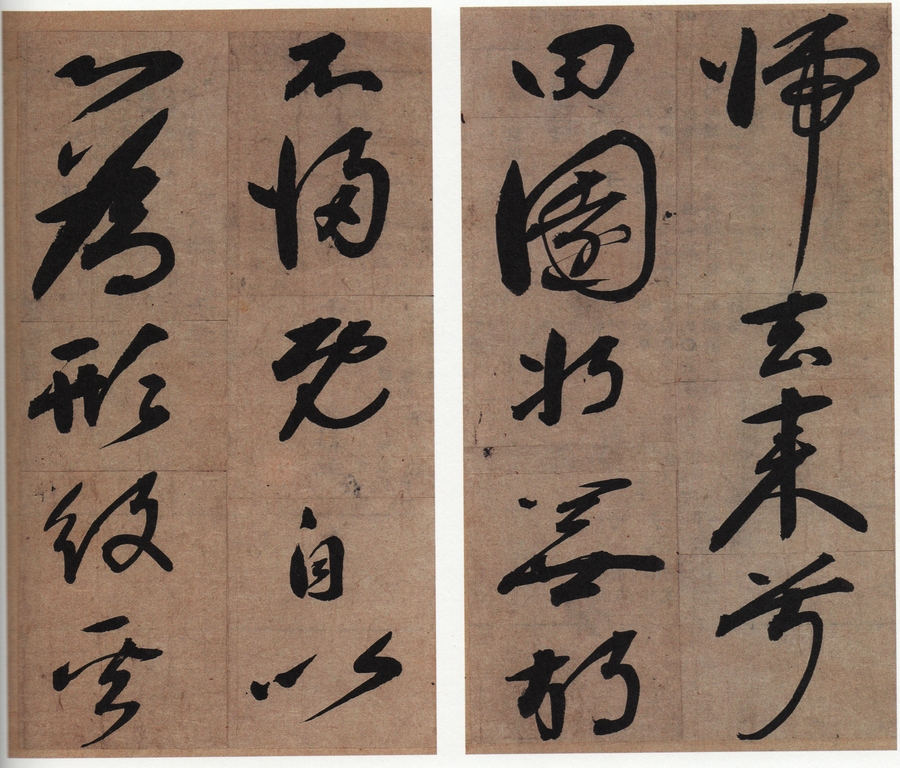 歸去来兮
田園將蕪胡
不歸既自以
心為形役奚